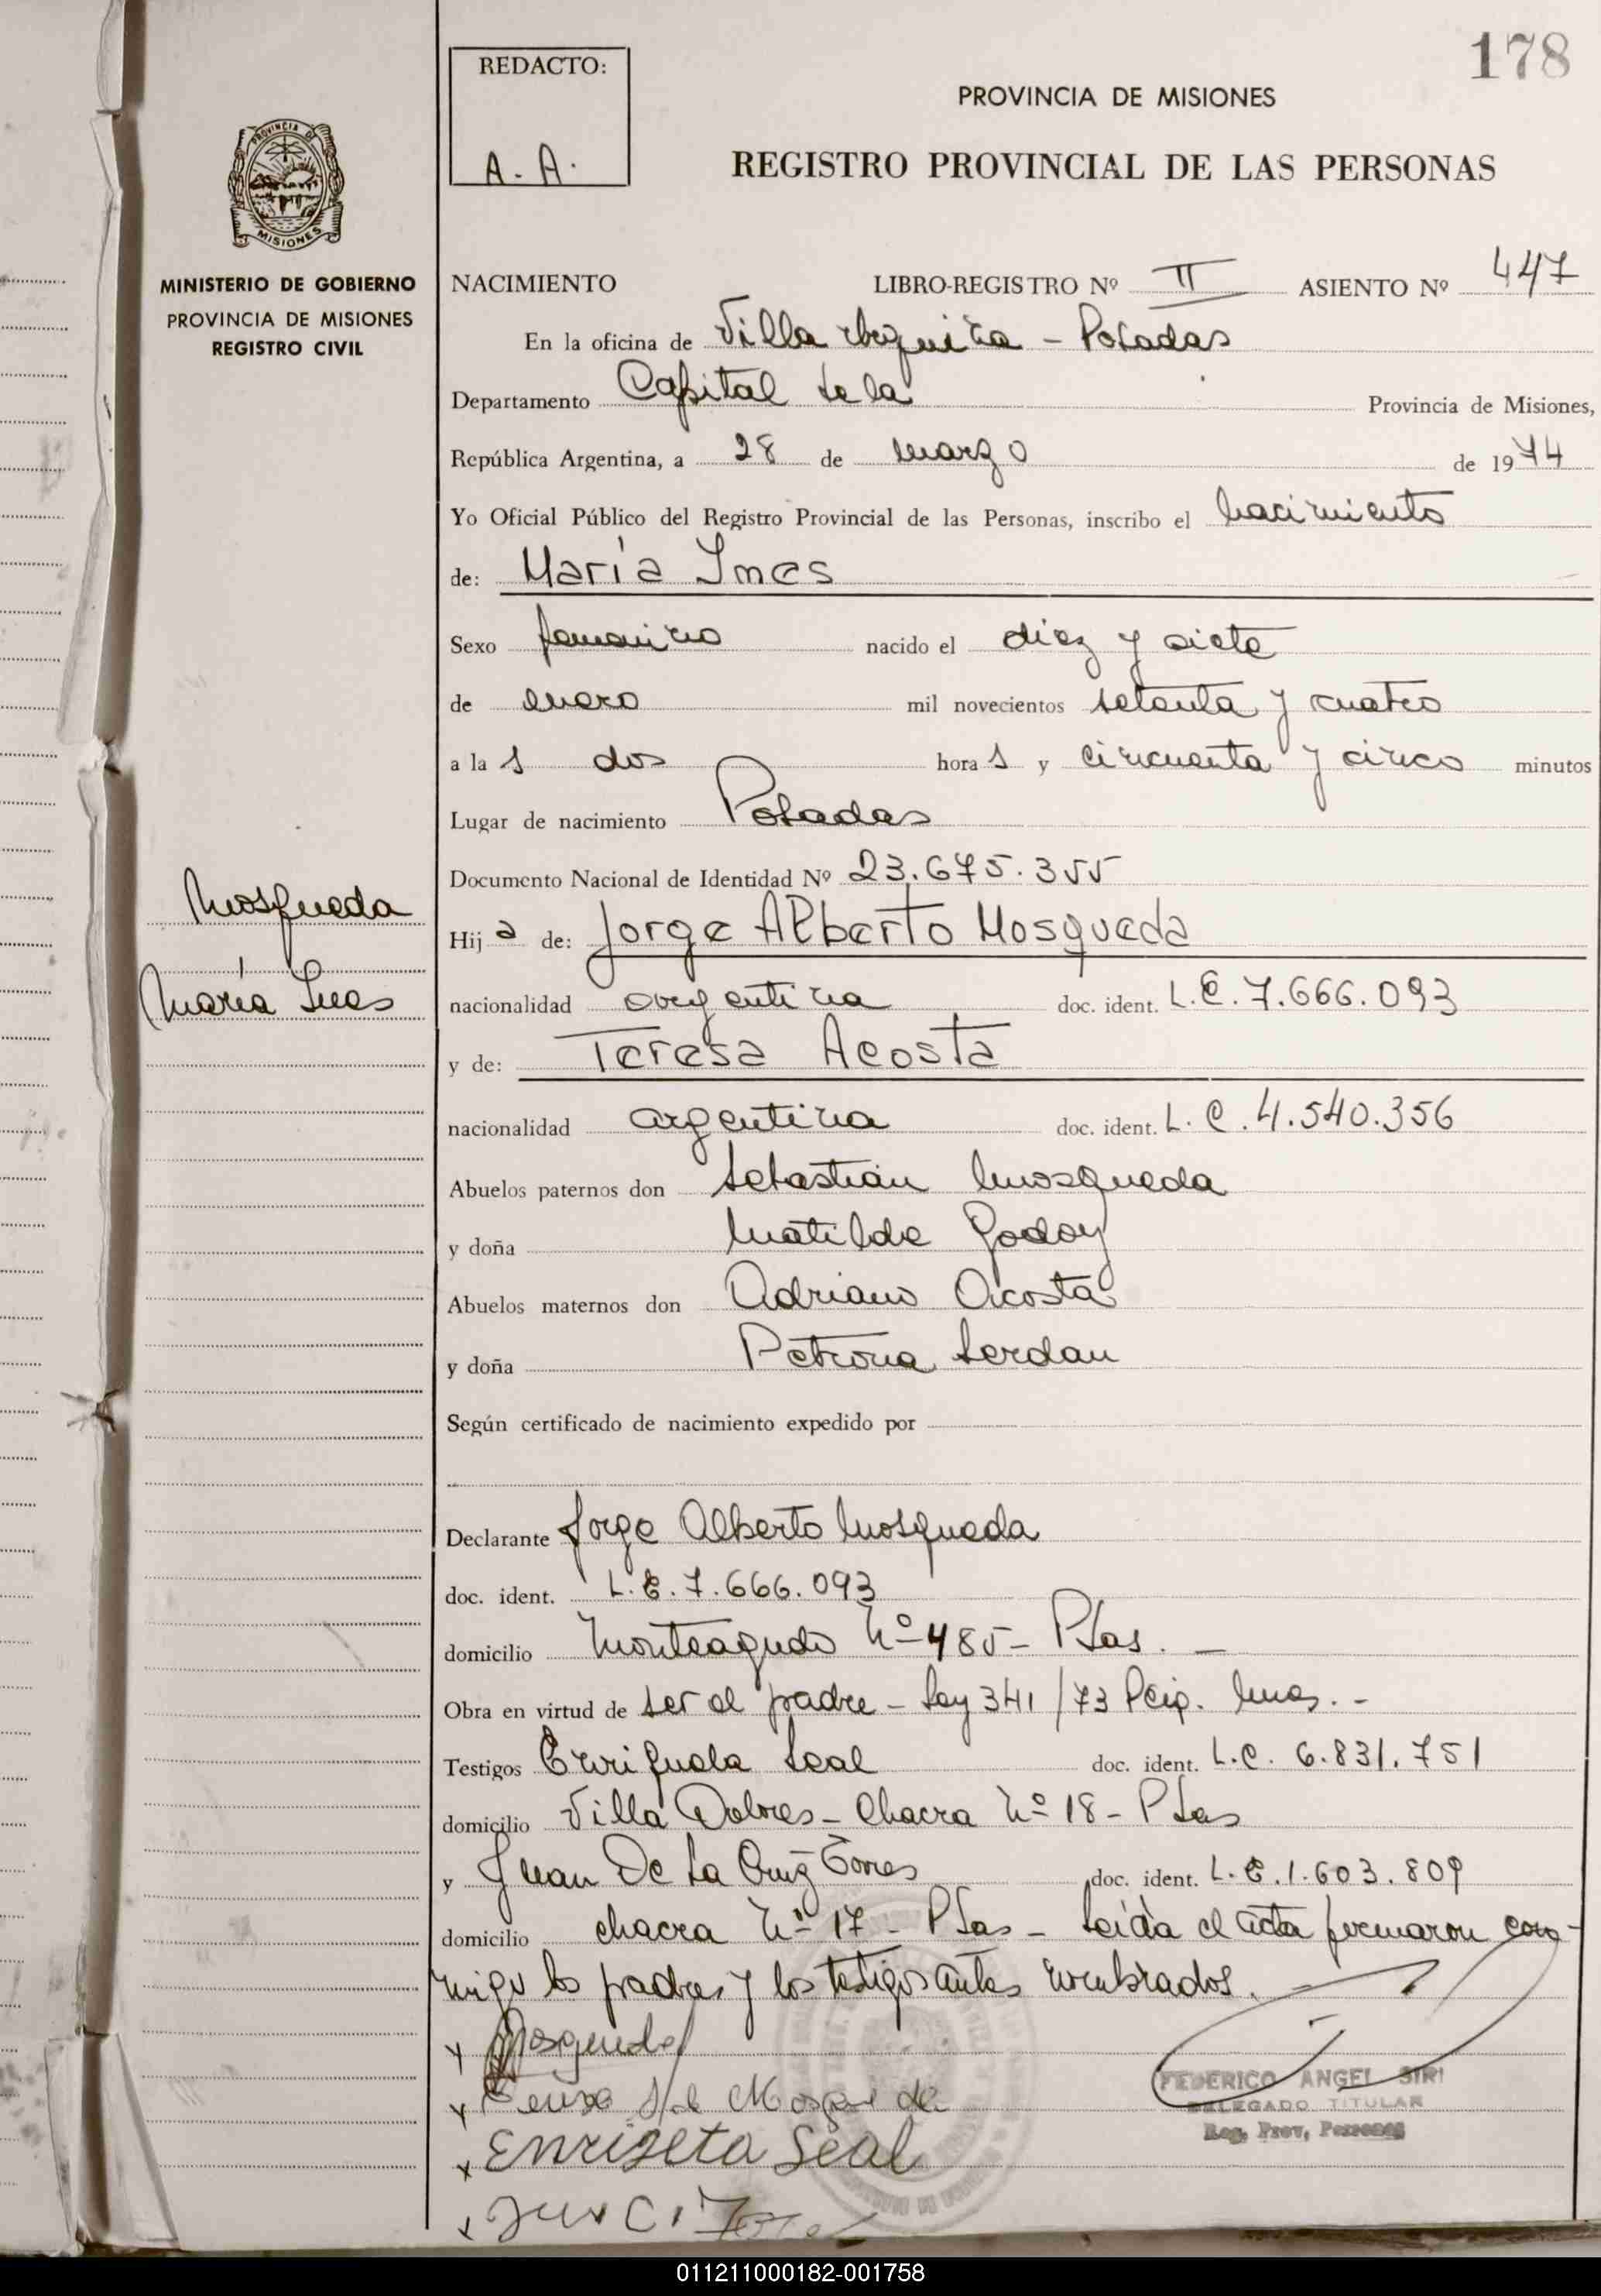 178
REDACTO:
A. A.
PROVINCIA DE MISIONES
REGISTRO PROVINCIAL DE LAS PERSONAS
MISIONES
MINISTERIO DE GOBIERNO
PROVINCIA DE MISIONES
REGISTRO CIVIL
NACIMIENTO LIBRO-REGISTRO Nº II ASIENTO Nº 447
En la oficina de Villa Urquiza - Posadas
Departamento Capital de la Provincia de Misiones,
República Argentina, a 28 de marzo de 1974
Yo Oficial Público del Registro Provincial de las Personas, inscribo el nacimiento
de: María Ines
Sexo femenino nacido el diez y siete
de enero mil novecientos setenta y cuatro
a la s dos hora s y cincuenta y cinco minutos
Lugar de nacimiento Posadas
Documento Nacional de Identidad Nº 23.675.355
Mosqueda
María Ines
Hij a de: Jorge Alberto Mosqueda
nacionalidad argentina doc. ident. L.E. 7.666.093
y de: Teresa Acosta
nacionalidad argentina doc. ident. L.C. 4.540.356
Abuelos paternos don Sebastián Mosqueda
y doña Matilde Godoy
Abuelos maternos don Adriano Acosta
y doña Petrona Serdan
Según certificado de nacimiento expedido por
Declarante Jorge Alberto Mosqueda
doc. ident. L.E. 7.666.093
domicilio Monteagudo Nº 485 - Psas. -
Obra en virtud de ser el padre - Ley 341/73 Pcia. Mnes. -
Testigos Seal doc. ident. L.C. 6.831.751
domicilio Villa Dolores - Chacra Nº 18 - Psas
y Juan De La Cruz Torres doc. ident. L.E. 1.603.809
domicilio chacra Nº 17 - Psas - Leída el acta firmaron con-
migo los padres y los testigos antes nombrados.
x Mosqueda
x de Mosqueda
x Enriqueta Seal
x Torres
FEDERICO ANGEL SIRI
DELEGADO TITULAR
Reg. Prov. Personas
011211000182-001758